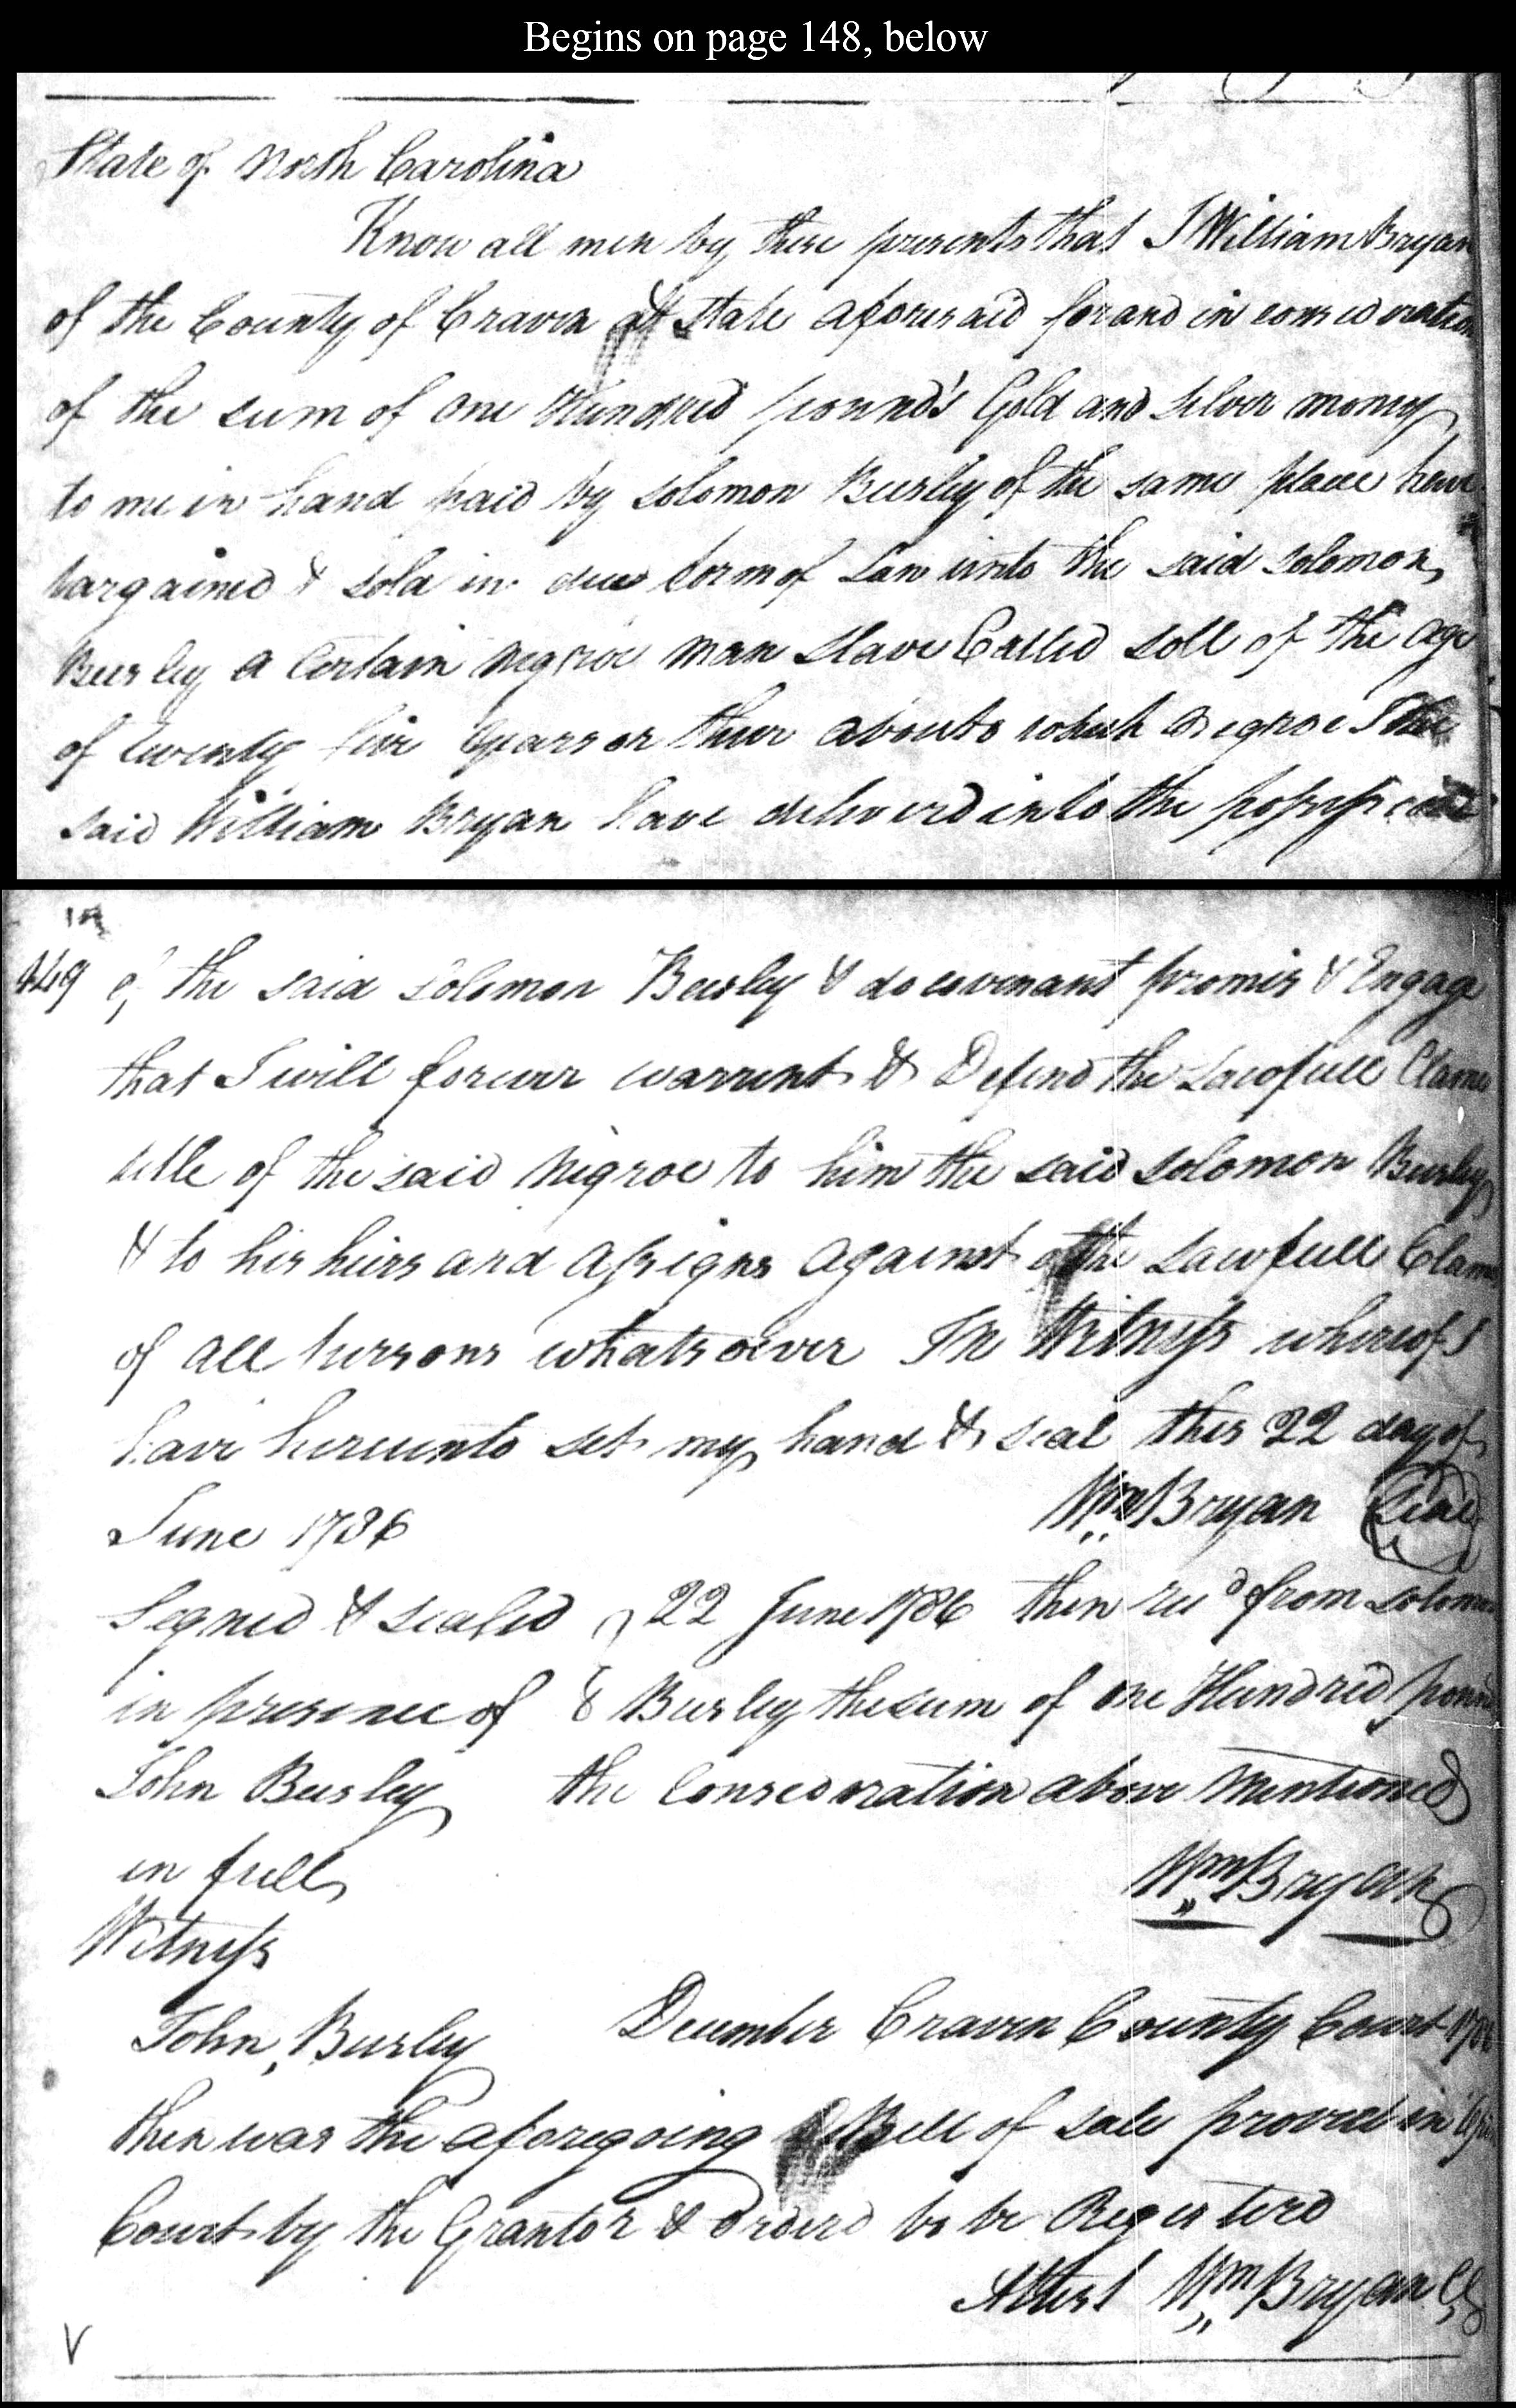 Begins on page 148, below
State of North Carolina
Know all men by these presents that I William Bryan
of the County of Craven & State aforesaid for and in consideration
of the sum of one Hundred pound's Gold and silver money
to me in hand paid by Solomon Busley of the same place have
bargained & sold in due form of Law unto the said Solomon
Busley a Certain Negroe man slave Called Soll of the age
of twenty five Years or there abouts which Negroe I the
said William Bryan have deliverd into the possession
149 of the said Solomon Busley & do covenant promis & Engage
that I will forever warrent & Defend the Lawfull Clame
title of the said Negroe to him the said Solomon Busley
& to his heirs and assigns against the Lawfull Clame
of all persons whatsoever In Witness whereof I
have hereunto set my hand & seal this 22 day of
June 1786 Wm Bryan Seal
Segned & sealed 22 June 1786 then recd from Solomon
in presence of Busley the sum of one Hundred pounds
John Busley the Consederation above Mentioned
in full Wm Bryan
Witness
John Busley December Craven County Court
then was the aforegoing Bill of sale proved in open
Court by the Grantor & Orderd to be Registerd
Attest Wm Bryan